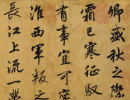 卿盛秋之際
霜已寒征馭
有事宜可密
淮西軍叛之
長江上流一